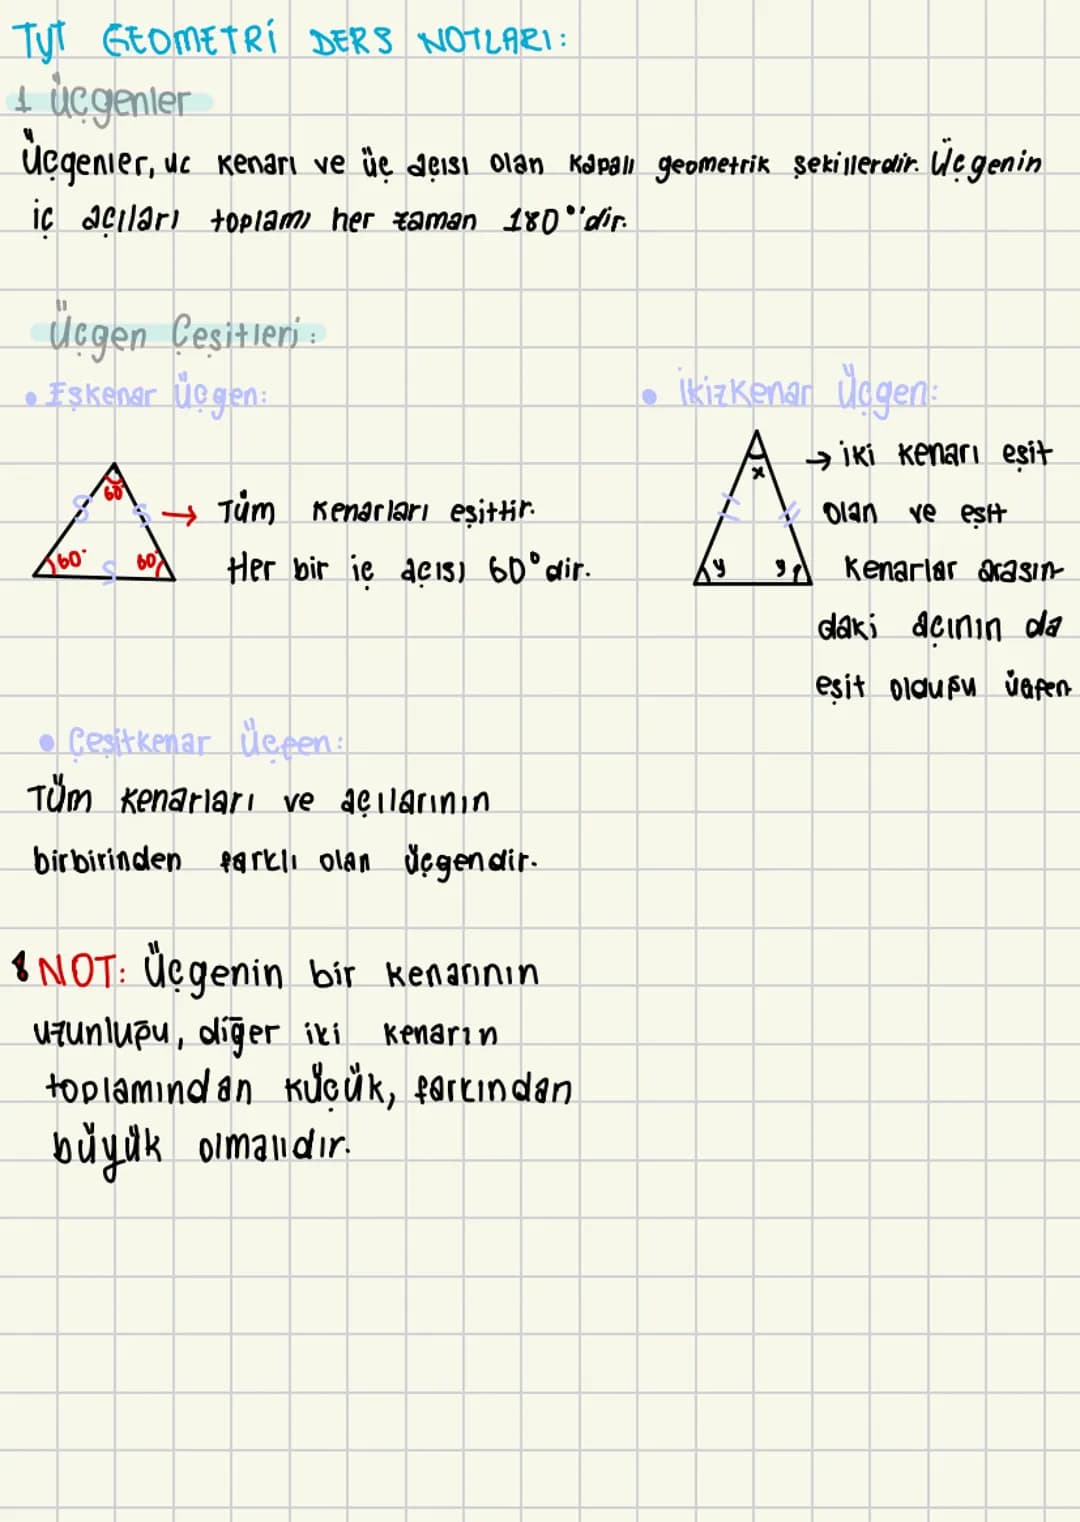 TYT GEOMETRİ DERS NOTLARI:
1 üçgenler
Üçgenler, uc kenarı ve üç açısı olan kapalı geometrik şekillerdir. Üçgenin
iç açıları toplamı her zaman 180°'dir.
Üçgen Çeşitleri:
• Eşkenar Üçgen:
60
60°
60
→ Tüm kenarları eşittir.
Her bir iç açısı 60° dir.
• İkizkenar Üçgen:
x
y
y
→ iki kenarı eşit
olan ve eşit
kenarlar arasın-
daki açının da
eşit olduğu üçgen
• Çeşitkenar Üçgen:
Tüm kenarları ve açılarının
birbirinden farklı olan üçgendir.
NOT: Üçgenin bir kenarının
uzunluğu, diğer iki kenarın
toplamından küçük, farkından
büyük olmalıdır.